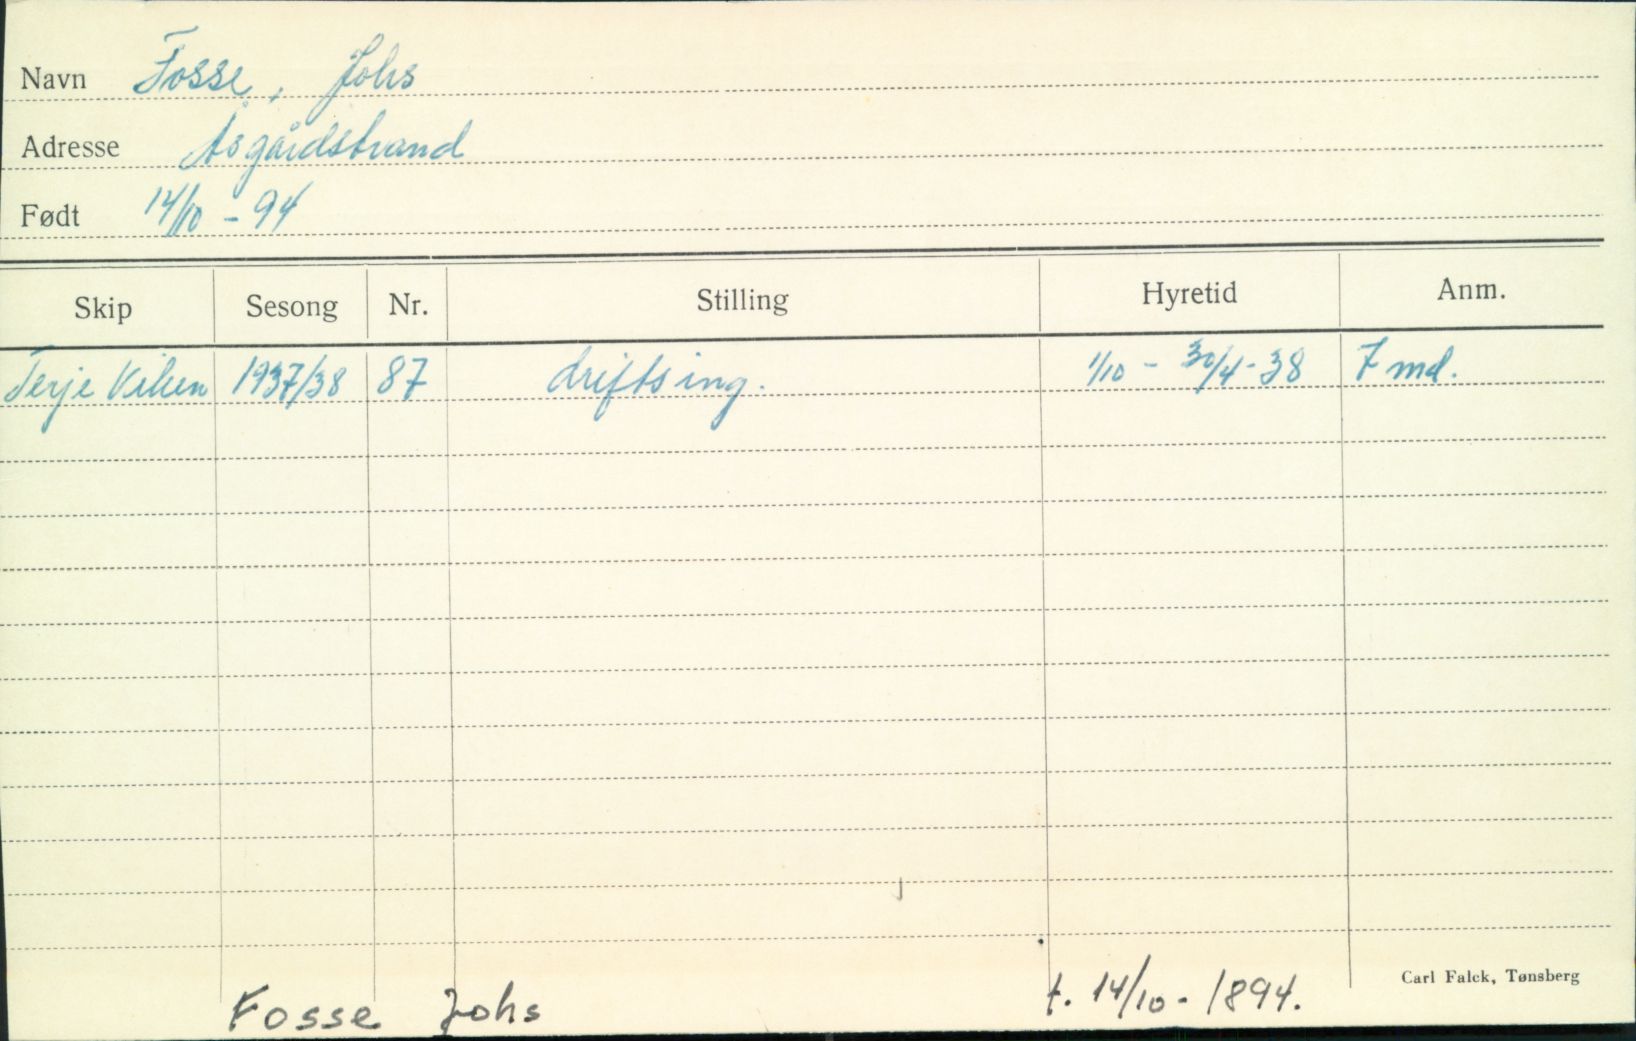 Navn Fosse, Johs
Adresse Åsgårdstrand
Født 14/10 - 94
Skip Sesong Nr. Stilling Hyretid Anm.
Terje Viken 1937/38 87 driftsing. 1/10 - 30/4 - 38 7 md.
Carl Falck, Tønsberg
Fosse Johs f. 14/10 - 1894.